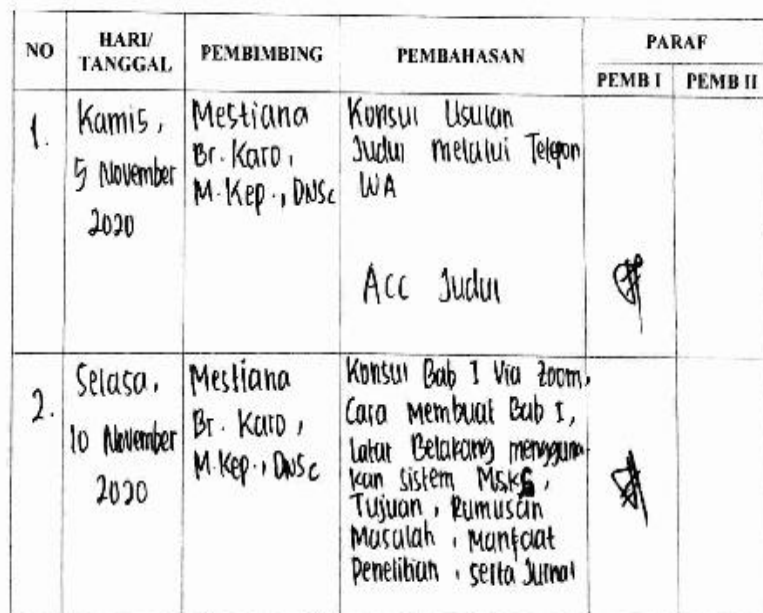 NO
HARI/
TANGGAL
PEMBIMBING
PEMBAHASAN
PARAF
PEMB I
PEMB II
1.
Kamis,
5 November
2020
Mestiana
Br. Karo,
M.Kep., DNSc
Konsul Usulan
Judul melalui Telepon
WA
Acc Judul
2.
Selasa,
10 November
2020
Mestiana
Br. Karo,
M.Kep., DNSc
Konsul Bab I Via Zoom,
Cara Membuat Bab I,
Latar Belakang mengguna
kan sistem MSKS,
Tujuan, Rumusan
Masalah, Manfaat
Penelitian, serta Jurnal